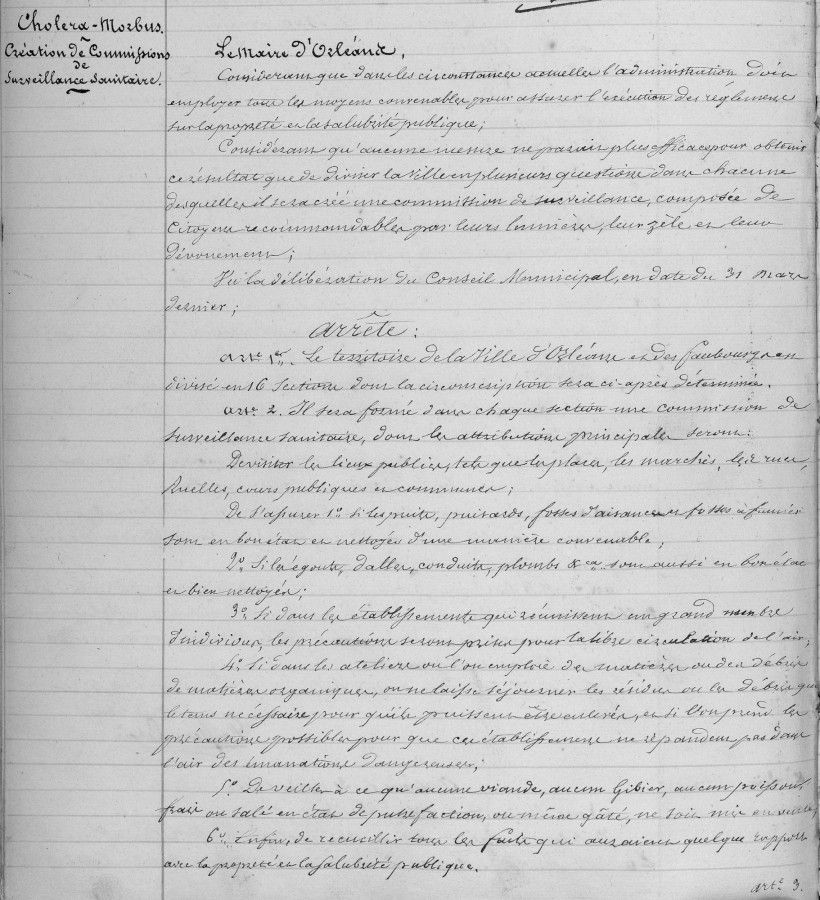 Cholera-Morbus.
Création de Commissions
de
Surveillance Sanitaire.
Le Maire d'Orléans,
Considérant que dans les circonstances actuelles l'administration doit
employer tous les moyens convenables pour assurer l'exécution des réglemens
sur la propreté et la salubrité publique;
Considérant qu'aucune mesure ne parait plus efficace pour obtenir
ce résultat que de diviser la Ville en plusieurs questions dans chacune
desquelles il sera créé une commission de surveillance, composée de
Citoyens recommandables par leurs lumières, leur zèle et leur
dévouement;
Vu la délibération du Conseil Municipal, en date du 31 Mars
dernier;
Arrête:
Art. 1er. Le territoire de la Ville d'Orléans et des faubourgs en
divisé en 16 Sections dont la circonscription sera ci-après déterminée.
Art. 2. Il sera formé dans chaque section une commission de
surveillance sanitaire, dont les attributions principales seront:
De visiter les lieux publics, tels que les places, les marchés, les rues,
Ruelles, cours publiques et communes;
De s'assurer 1° si les puits, puisards, fosses d'aisances et fosses à fumier
sont en bon état et nettoyés d'une manière convenable;
2° Si les égouts, dalles, conduits, plombs &ca sont aussi en bon état
et bien nettoyés;
3° Si dans les établissements qui réunissent un grand nombre
d'individus, les précautions seront prises pour la libre circulation de l'air;
4° Si dans les ateliers où l'on emploie des matières ou des débris
de matières organiques, on ne laisse séjourner les résidus ou les débris que
le tems nécessaire pour qu'ils puissent être enlevés, et si l'on prend les
précautions possibles pour que ces établissemens ne répandent pas dans
l'air des émanations dangereuses;
5° De veiller à ce qu'aucune viande, aucun Gibier, aucun poisson
frais ou salé en état de putréfaction, ou même gâté, ne soit mis en vente;
6° Enfin, de recueillir tous les faits qui auraient quelque rapport
avec la propreté et la salubrité publique.
Arte 3.